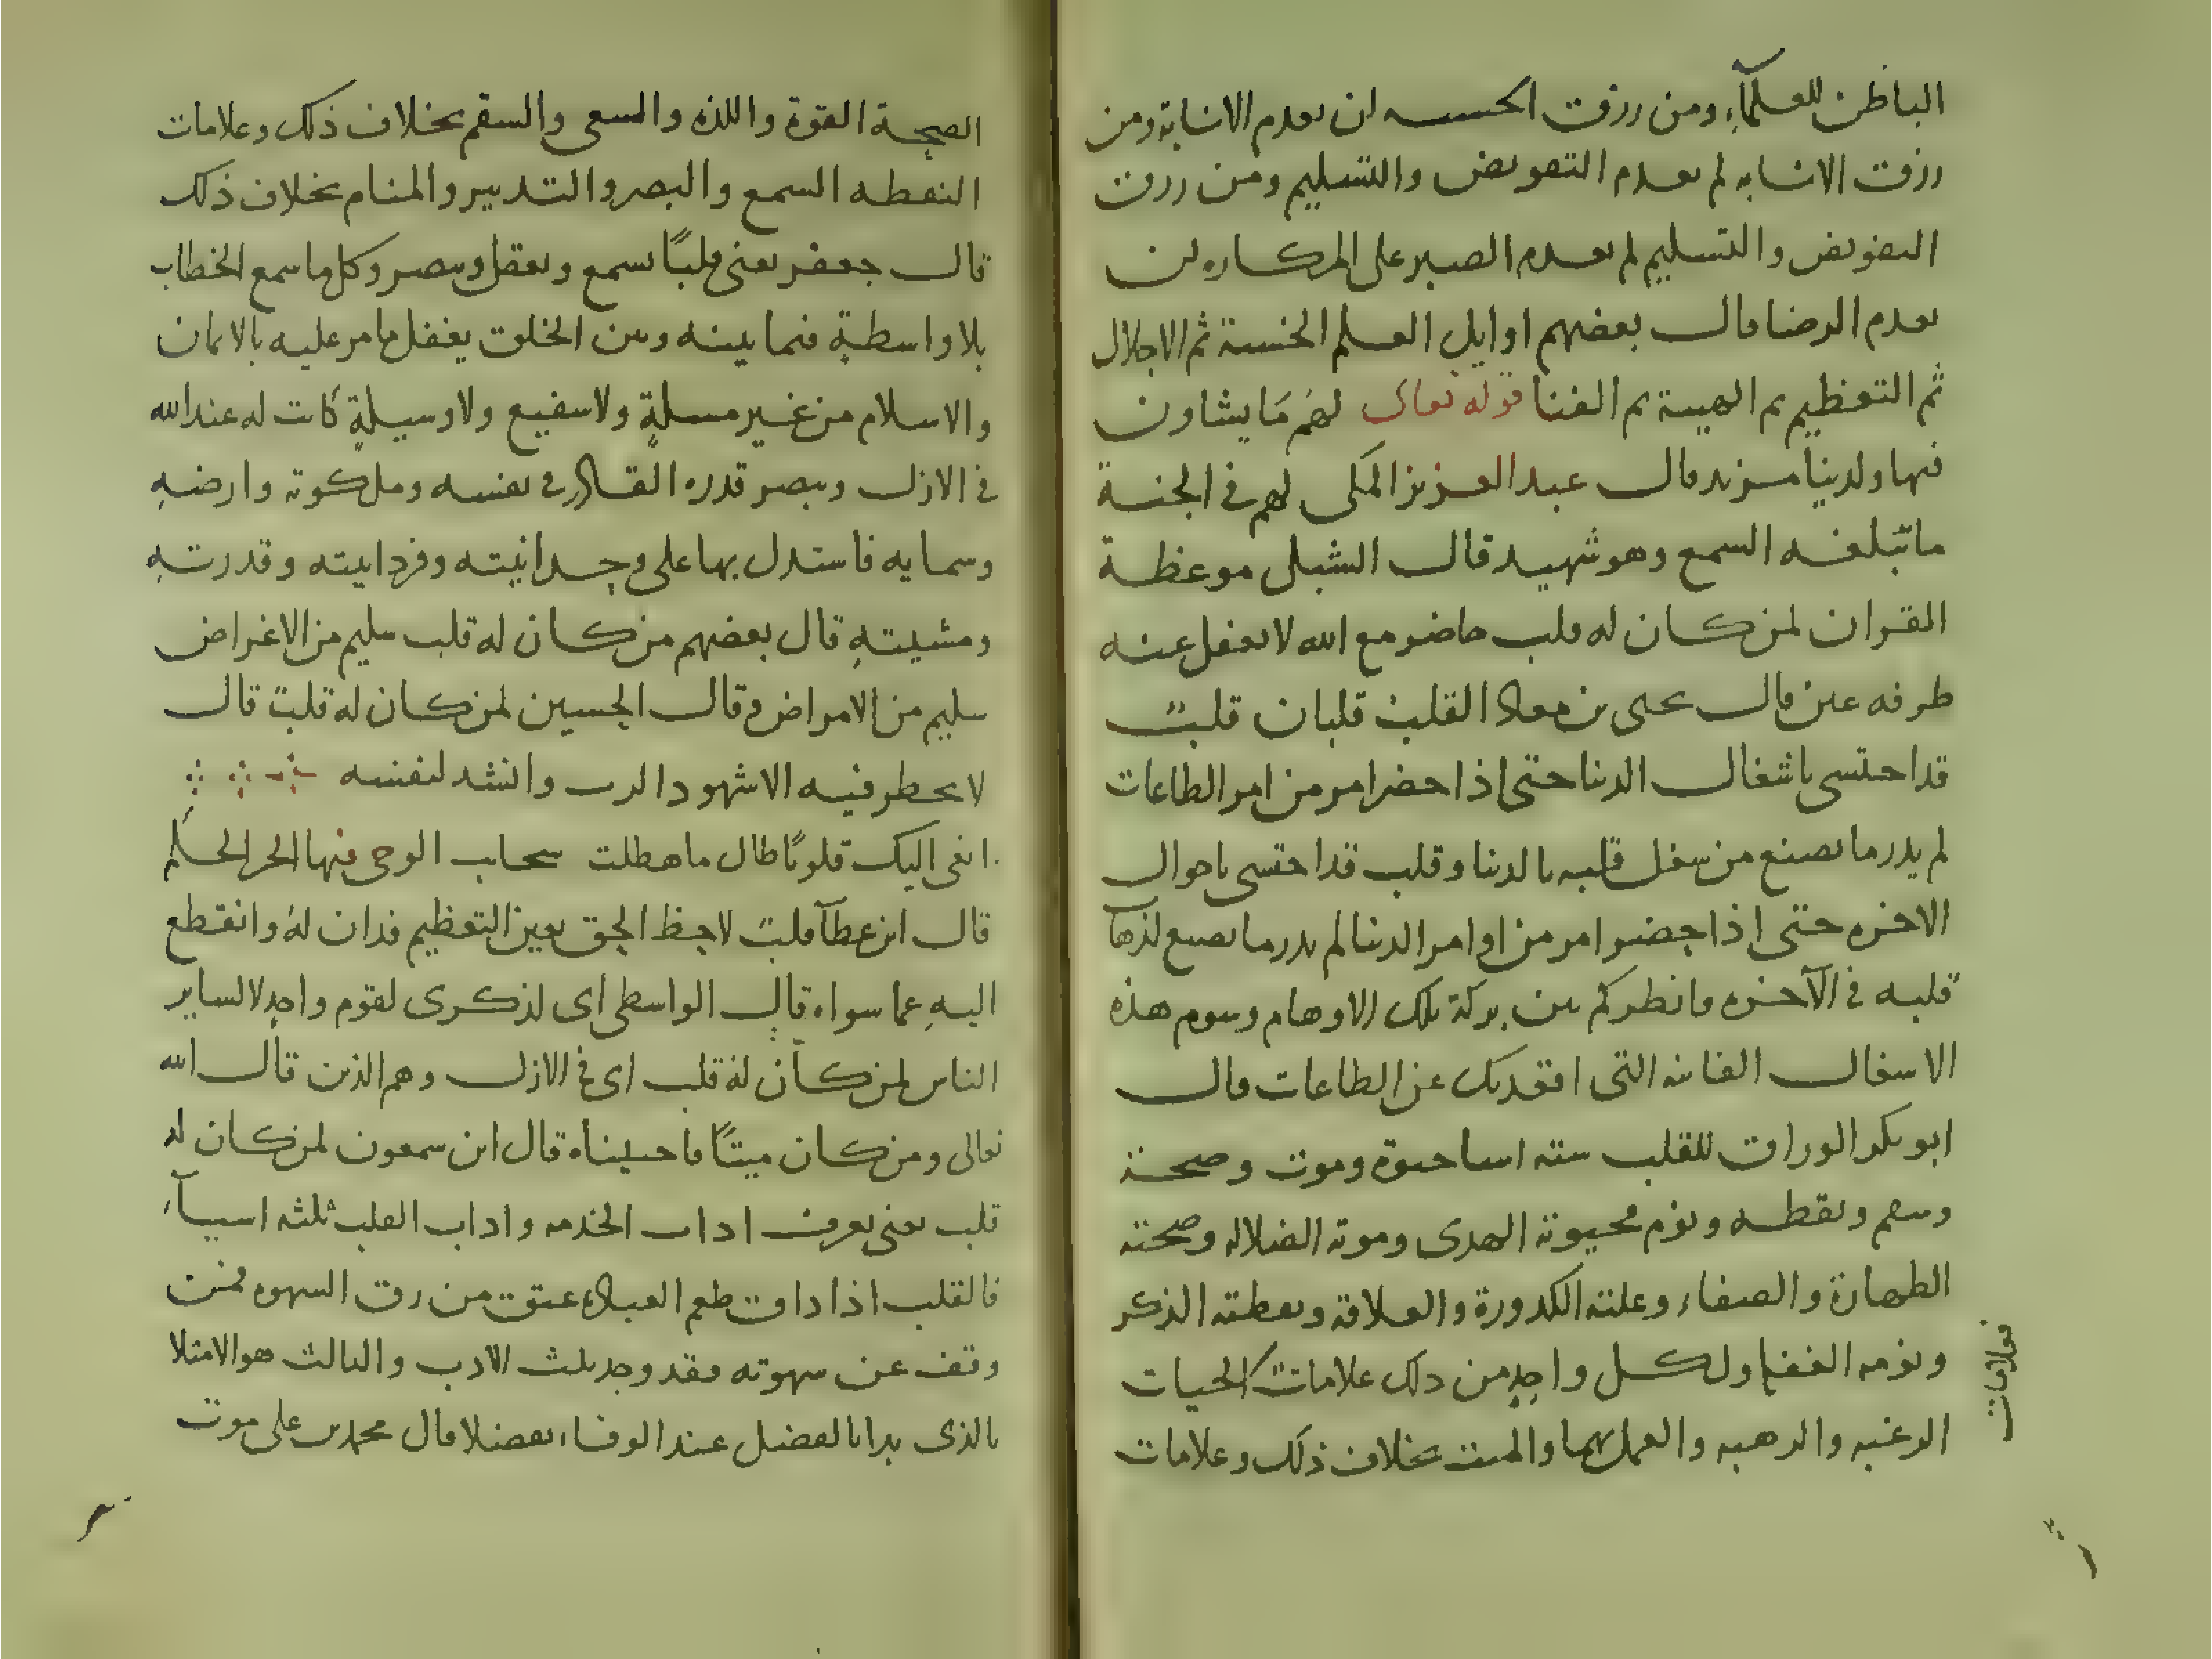 الباطن للعلماء ومن رزق الخشية لن يعدم الانابة ومن
رزق الانابه لم يعدم التفويض والتسليم ومن رزق
التفويض والتسليم لم يعدم الصبر على المكاره لن
يعدم الرضا قال بعضهم اوايل العلم الخشية ثم الاجلال
ثم التعظيم ثم الهيبة ثم الفنا قوله تعالى لهم ما يشاون
فيها ولدينا مزيد قال عبد العزيز المكى لهم فى الجنة
السمع وهو شهيد قال الشبلى موعظة
القران لمن كان له قلب حاضر مع الله لا يغفل عنه
طرفه عين قال يحيى بن معاذ القلب قلبان قلب
قد احتشى باشغال الدنيا حتى اذا حضر امر من امر الطاعات
لم يدر ما يصنع من شغل قلبه بالدنيا وقلب قد احتشى باحوال
الاخره حتى اذا حضر امر من اوامر الدنيا لم يدر ما يصنع لذهاب
قلبه فى الآخره فانظر كم بين بركة تلك الاوهام وشوم هذه
الاشغال الفانيه التى اقعدتك عن الطاعات قال
ابو بكر الوراق للقلب سته اشيا حيوة وموت وصحة
وسقم ويقظه ونوم فحيوته الهدى وموته الضلاله وصحته
الطهارة والصفاء وعلته الكدورة والعلاقة ويقظته الذكر
ونومه الغفلة ولكل واحد من ذلك علامات الحيات
فعلامات
الرغبه والرهبه والعمل بهما والميت بخلاف ذلك وعلامات
الصحة القوة واللذه والسعى والسقم بخلاف ذلك وعلامات
اليقظه السمع والبصر والتدبير والمنام بخلاف ذلك
قال جعفر يعنى قلبًا يسمع ويعقل ويبصر وكل ما سمع الخطاب
بلا واسطةٍ فيما بينه وبين الخلق يعقل ما مر عليه بالايمان
والاسلام من غير مسلةٍ ولا شفيع ولا وسيلةٍ كانت له عند الله
فى الازل ويبصر قدره القادر فى نفسه وملكوته وارضهِ
وسمايه فاستدل بها على وحدانيته وفردانيته وقدرتهِ
ومشيتهِ قال بعضهم من كان له قلب سليم من الاغراض
سليم من الامراض وقال الحسين لمن كان له قلبٌ قال
لا يخطر فيه الا شهود الرب وانشد لنفسه
انعى اليك قلوبًا طال ما هطلت سحاب الوحى فيها ابحر الحكم
قال ابن عطآ قلبٌ لاحظ الحق بعين التعظيم فدان لهُ وانقطع
اليهِ عما سواه قال الواسطى اى لذكرى لقوم واحدٍ لا لساير
الناس لمن كان له قلب اى فى الازل وهم الذين قال الله
تعالى ومن كان ميتًا فاحييناه قال ابن سمعون لمن كان له
قلب يعنى يعرف اداب الخدمه واداب القلب ثلثه اشيآء
فالقلب اذا ذاق طعم العبادة عتق من رق الشهوه فمن
وقف عن شهوته فقد وجد ثلث الادب والثالث هو الامتلا
بالذى بدا بالفضل عند الوفاء تفضلا قال محمد بن على موت